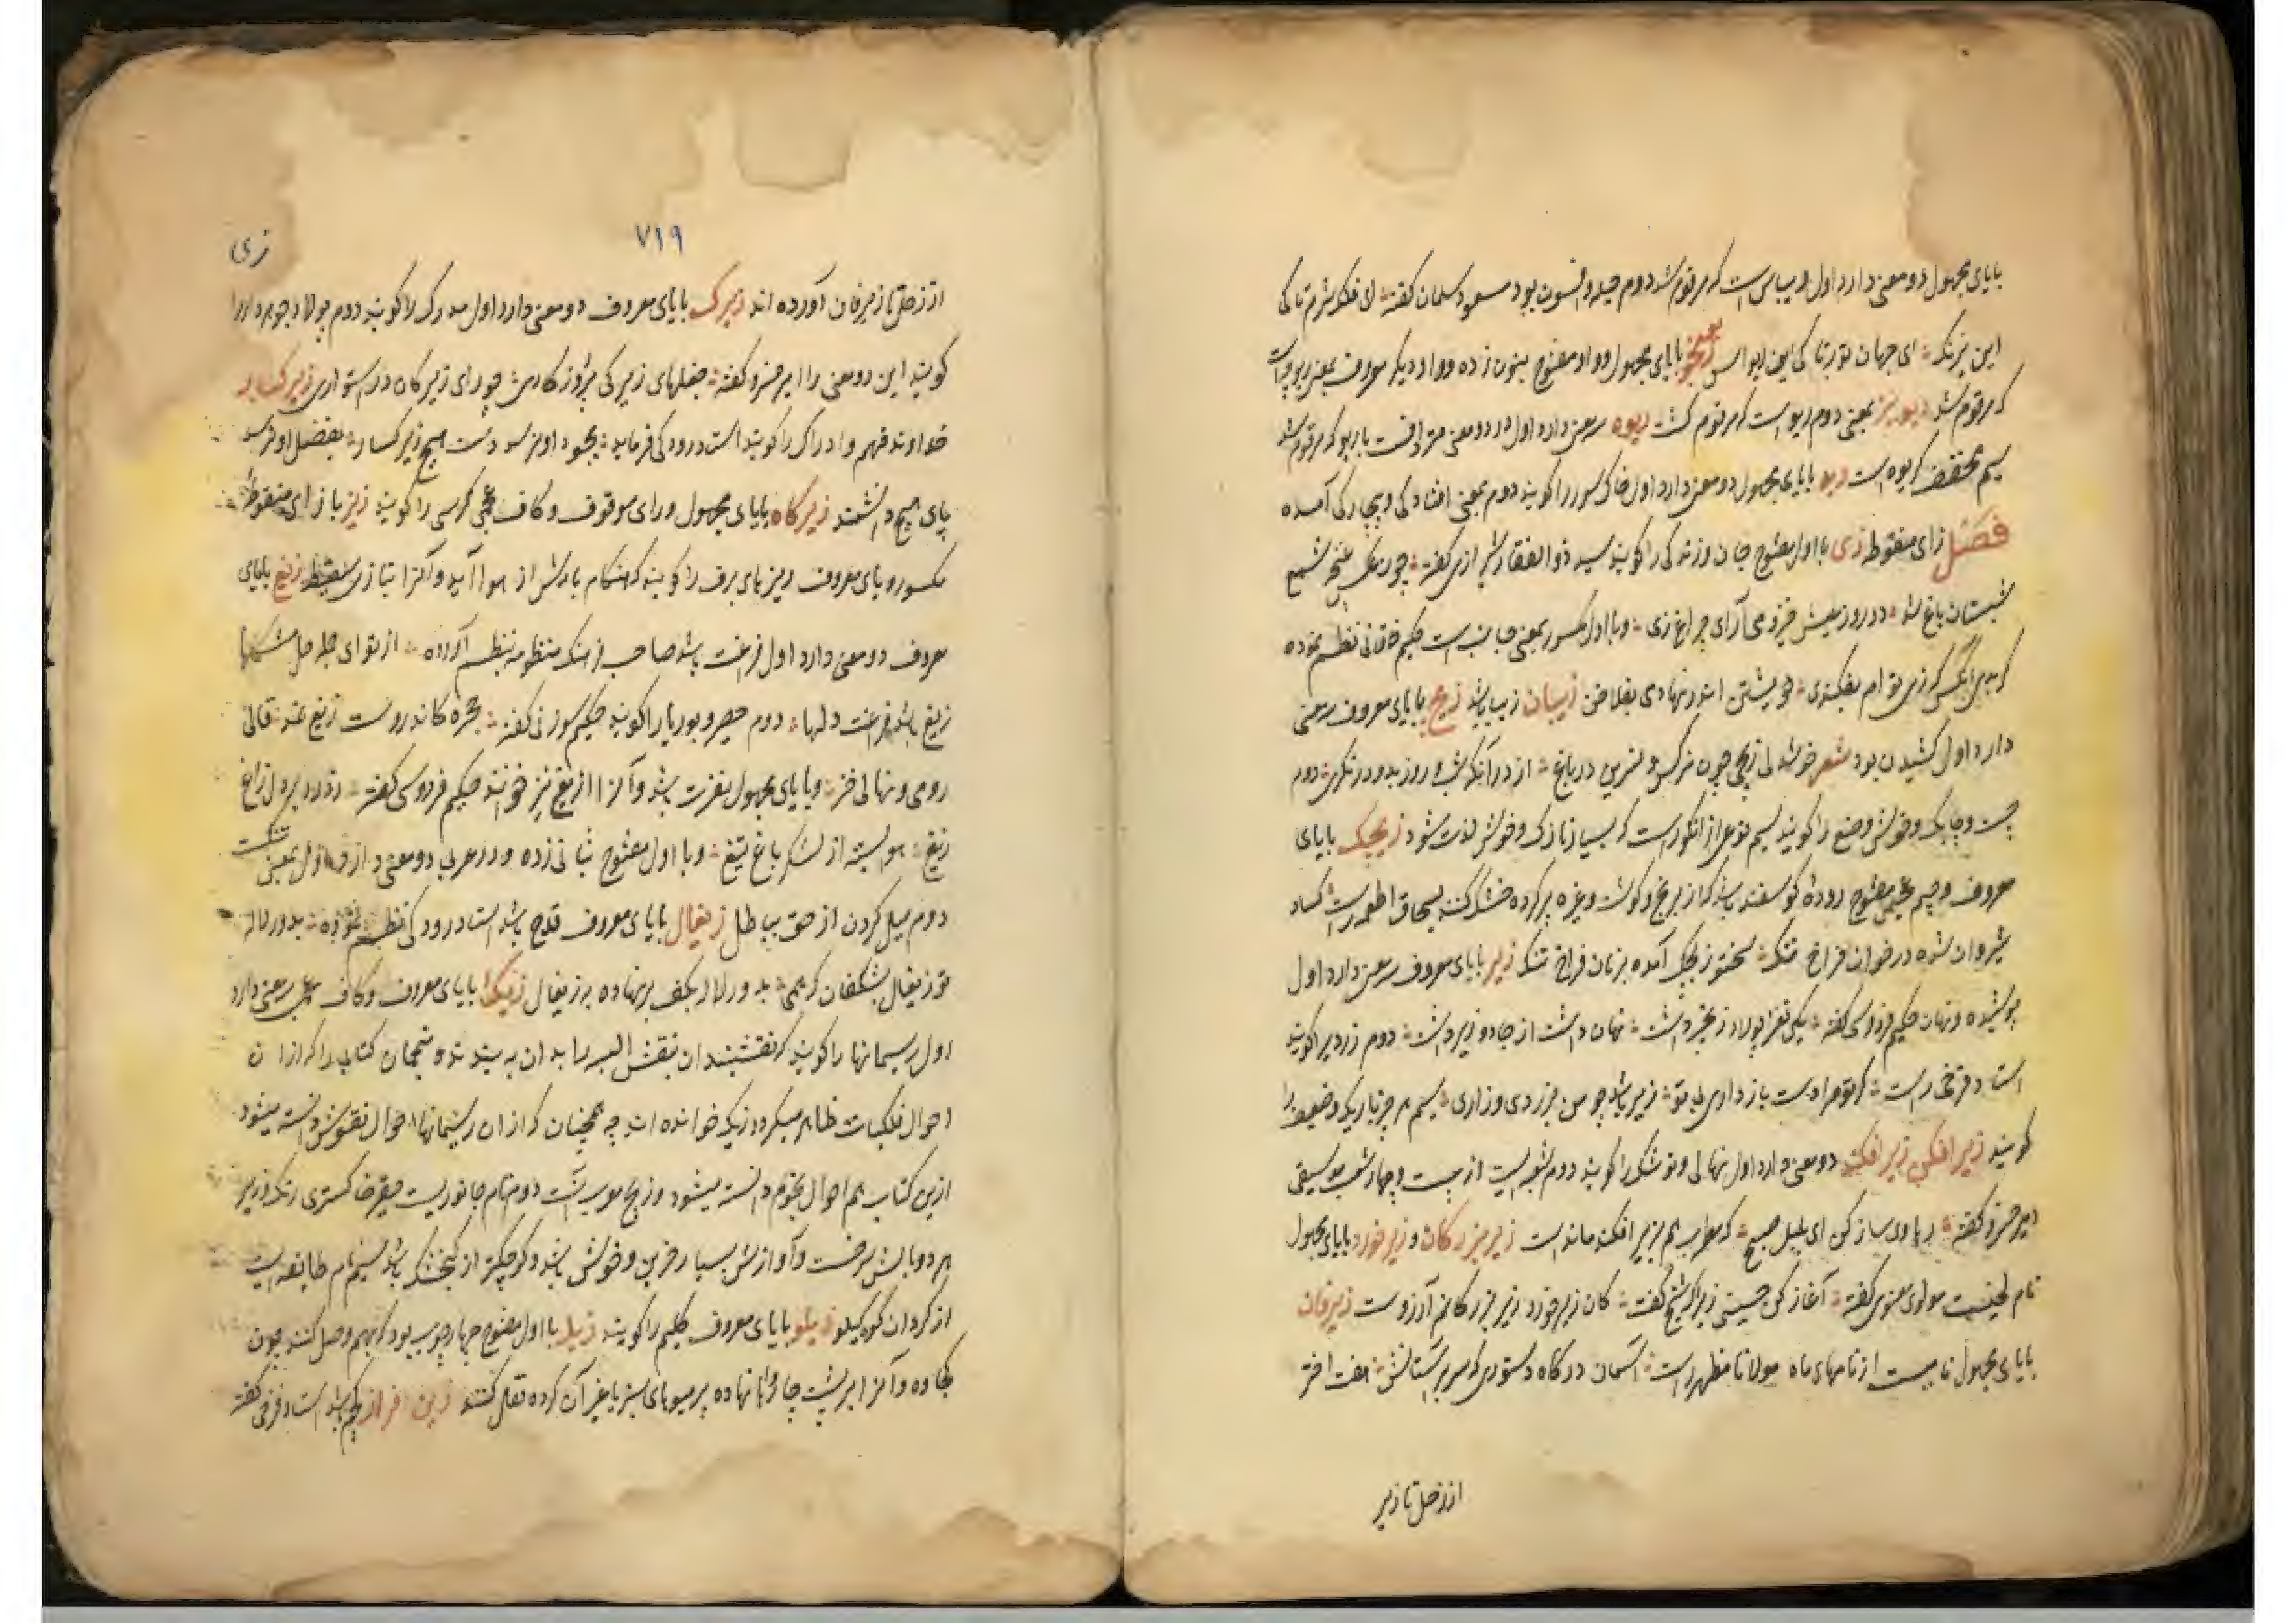 بایای مجهول دو معنی دارد اول و سیاسی است که مرقوم شد دوم حیله و افسون بود مسعود سلمان گفته ای فلک شرم تا کی
این نیرنگ ای جهان توبه تا کی این ریو بایای مجهول و واو مفتوح بنون زده و واو دیگر معروف بمعنی
که مرقوم شد بمعنی دوم ریو است که مرقوم گشت ریوه سه معنی دارد اول در دو معنی مترادفست با ریو که مرقوم شد
سیم مخفف کریوه است بایای مجهول دو معنی دارد اول خاک شور را گویند دوم بمعنی افتادگی و بیچارگی آمده
فصل زای منقوطه زی با اول مفتوح جان و زندگی را گویند سید ذوالفقار شیرازی گفته چو رنگ غنچه شمع
شبستان باغ شد در روز عیش خیز و می آرای چراغ زی و با اول مکسور بمعنی جانب است حکیم خاقانی نظم نموده
که زی توام بفکندی خویشتن اندر نهادی بفلاخن زیبان زیبا باشد زیج بایای معروف سه معنی
دارد اول کشیدن بود شعر خوشدلی زیجی چون نرگس و نسرین در باغ از در آنکه شب و روز بدو در نگری دوم
چست و چابک و خوش وضع را گویند سیم نوعی از انگور است که بسیار نازک و خوش لذت شود زیچک بایای
معروف و جیم عجمی مفتوح روده گوسفند باشد که از برنج و گوشت و غیره پر کرده خشک کنند بسحاق اطعمه راست
شیروان شده در خوان فراخ تنگ زیچک آمده بر نان فراخ تنگ زیر بایای معروف سه معنی دارد اول
پوشیده و نهان حکیم فردوسی گفته یکی نغز پولاد زنجیر داشت نهان داشت از جادو زیر داشت دوم زریر را گویند
استاد فرخی راست گر تو مرا دست باز داری بی تو زیر باشم چو من بزردی و زاری سیم هر چیز باریک و ضعیف را
گویند زیر افکن زیر افکند دو معنی دارد اول نهالی و توشک را گویند دوم شعبه ایست از بیست و چهار شعبه موسیقی
امیر خسرو گفته رهاوی ساز کن ای بلبل صبح که مطرب هم بزیر افکند ماندست زیر بزرگان و زیر خرد بایای مجهول
نام لحنیست مولوی معنوی گفته آغاز کن حسینی زیرا که گفت کان زیر خرد زیر بزرگانم آرزوست زیرفان
بایای مجهول نامیست از نامهای ماه مولانا مظهر راست آسمان درگاه دستوری که سر بر آستانش هفت اختر
از زحل تا زیر
۷۱۹
زی
از زحل تا زیرفان آورده اند زیرک بایای معروف دو معنی دارد اول مدرک را گویند دوم
گویند این دو معنی را امیر خسرو گفته زیرکی چو رای زیرکان در استواری زیرکسار
خداوند فهم و ادراک را گویند استاد رودکی فرماید بجود او نرسد دست هیچ زیرکسار بفضل او نرسد
پای هیچ دانشمند زیرگاه بایای مجهول و رای موقوف و کاف عجمی کرسی را گویند زیز با زای منقوطه
مکسور و یای معروف ریزهای برف را گویند که هنگام بارش از هوا آید و آنرا بتازی سقیط زیغ بایای
معروف دو معنی دارد اول فرغت باشد صاحب فرهنگ منظومه بنظم آورده از تو ای جمله حل مشکلها
زیغ باشد فرغت دلها دوم حصیر و بوریا را گویند حکیم سوزنی گفته حجره کاندروست زیغ نمد قالی
رومی و نهالی خز و بایای مجهول نفرت باشد و آنرا ازیغ نیز خوانند حکیم فردوسی گفته
زیغ هوا بسته از لشکر باغ تیغ و با اول مفتوح بثانی زده و در عربی دو معنی دارد اول بمعنی
دوم میل کردن از حق بباطل زیغال بایای معروف قدح باشد استاد رودکی نظم نموده بدور لاله
تو زیغال بشگفان گر می بدور لاله بکف بر نهاده بر زیغال زیگ بایای معروف و کاف عجمی سه معنی دارد
اول ریسمانها را گویند که نقشبندان نقش البسه را بدان بندند و منجمان کتابی را که از آن
احوال فلکیات ظاهر میگردد زیک خوانده اند چه همچنان که از آن ریسمانها احوال نقوش دانسته میشود
ازین کتاب هم احوال نجوم دانسته میشود و زیج معرب آنست دوم نام جانوریست خاکستری رنگ و زیر
هر دو بالش سرخست و آوازش بسیار حزین و خوش باشد و کوچکتر از گنجشک باشد سیم نام طایفه ایست
از کردان کوه کیلو زیلو بایای معروف گلیم را گویند با اول مفتوح چهار چوب بود که بهم وصل کنند چون
کجاوه و آنرا بر پشت چاروا نهاده پر میوهای سبز یا غیر آن کرده نقل کنند زین افزار باشد استاد فرخی گفته